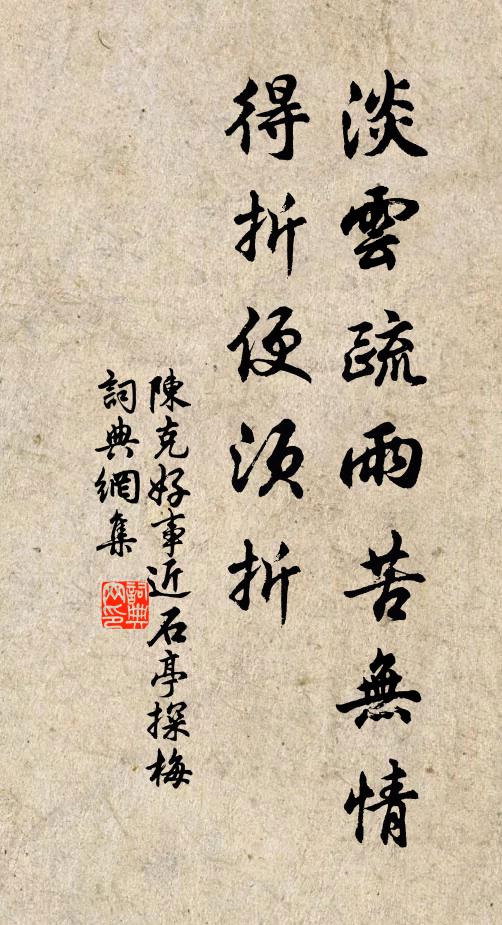 淡雲疏雨苦無情
得折便須折
陳克好事近石亭探梅
詞典網集
詞典網印